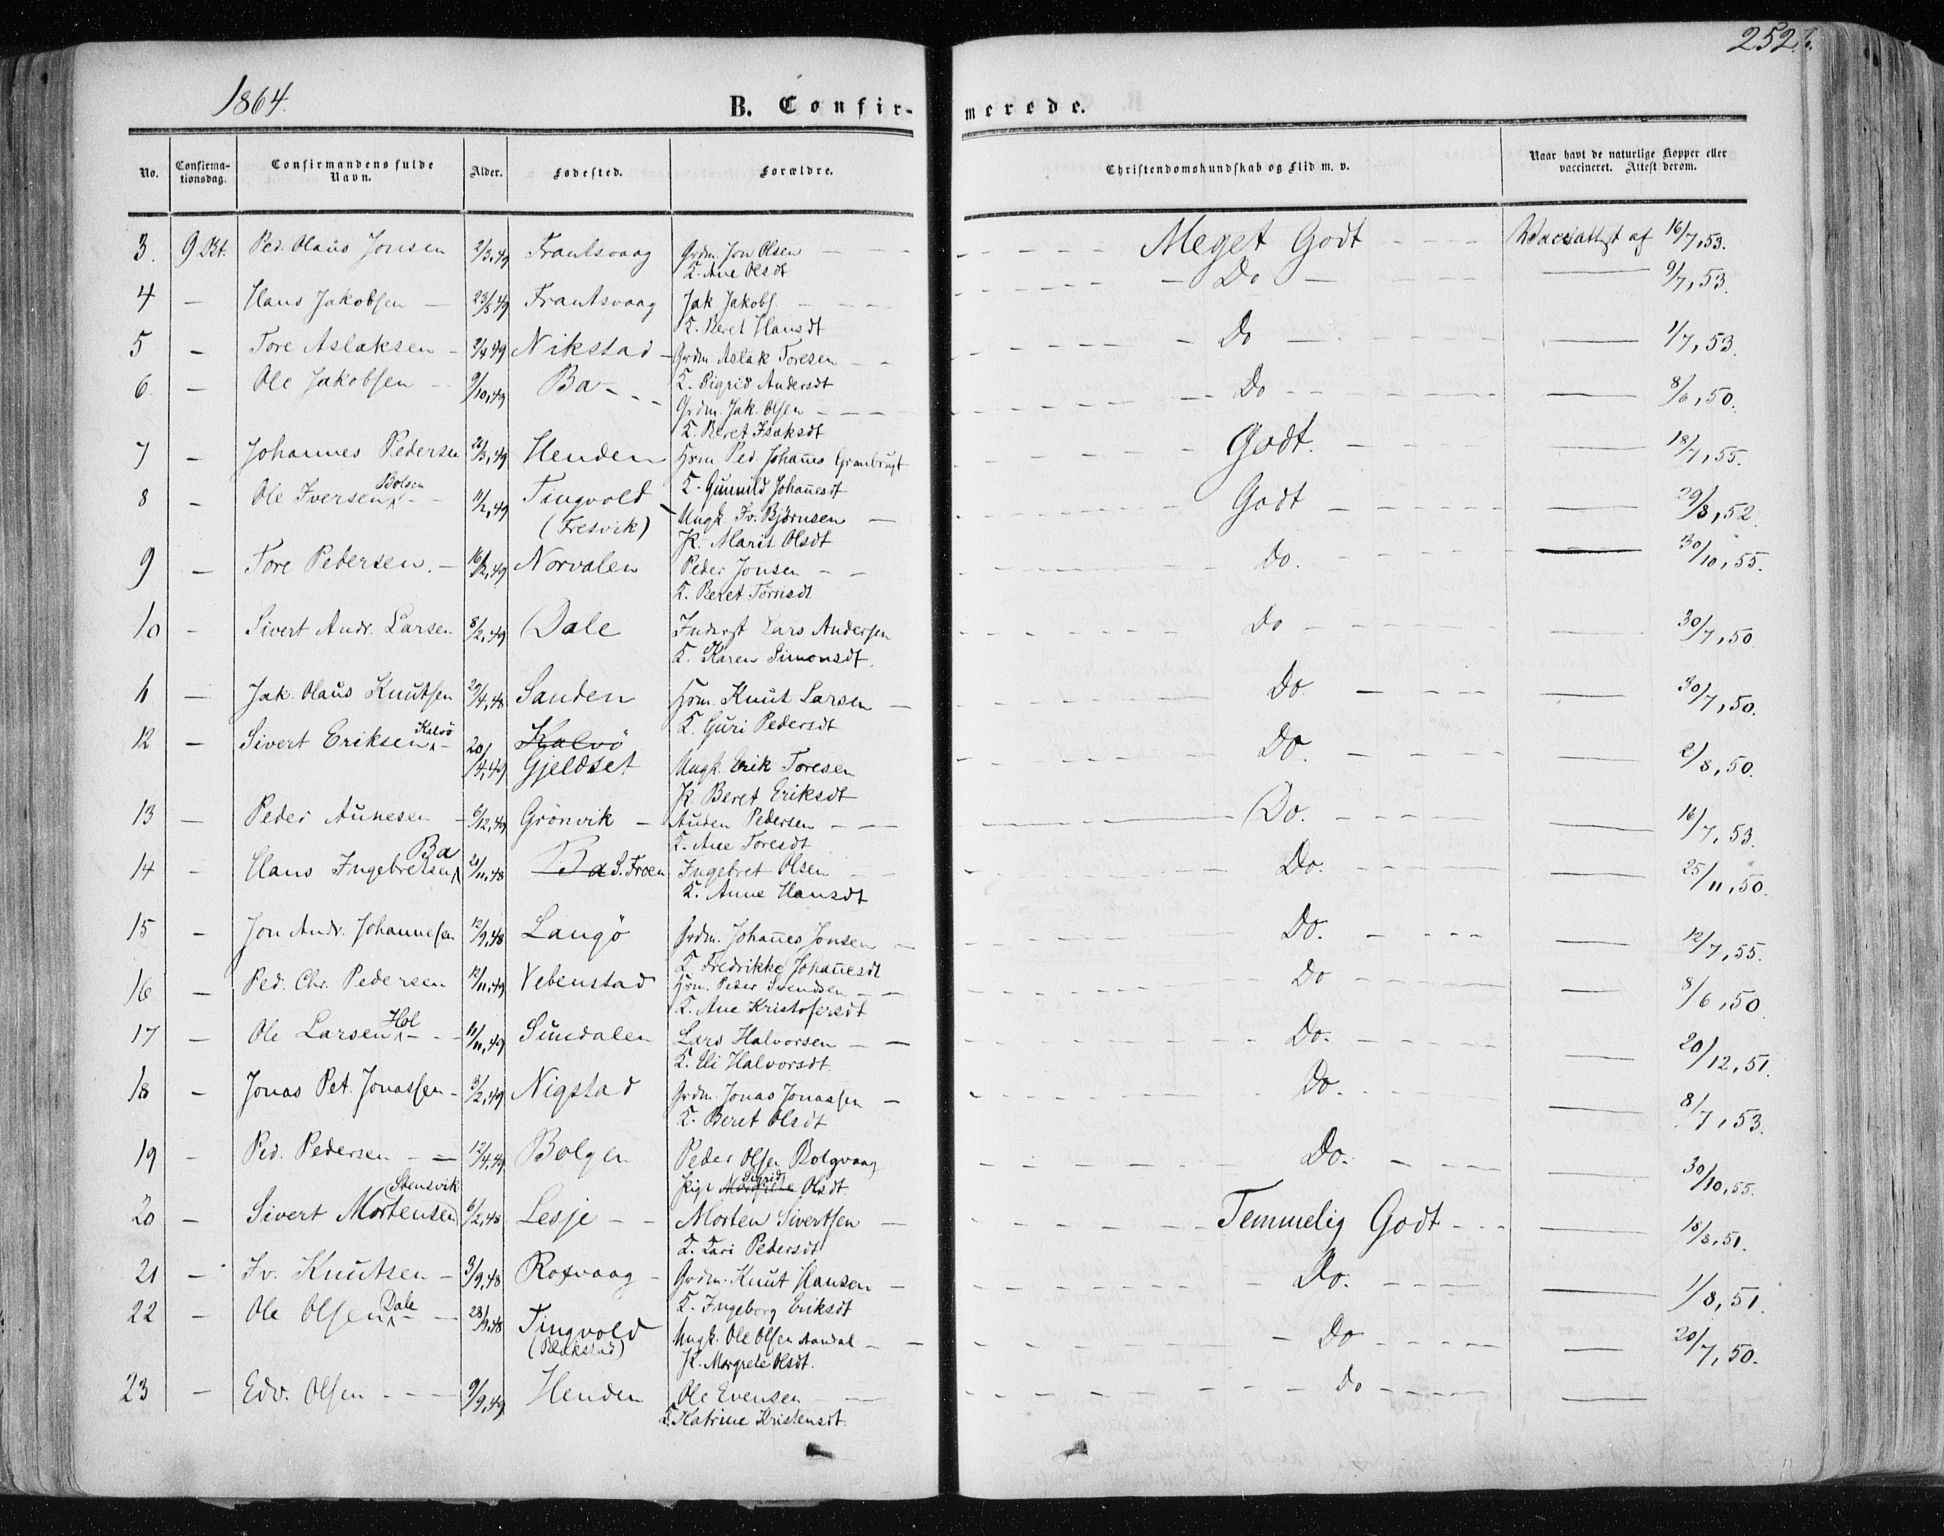 252.
1864.
B. Confirmerede.
No. Confirmationsdag. Confirmandens fulde Navn. Alder. Fødested. Forældre. Christendomskundskab og Flid m. v. Naar havt de naturlige Kopper eller vaccineret. Attest derom.
3. 9 Ped. Olaus Jonsen 2/3,49 Frantsvaag Grdm. Jon Olsen — Meget Godt — af 16/7,53.
K. Ane Olsdt
4 — Hans Jakobsen — 23/5 49 Frantsvaag Jak Jakobs. — Do — 9/7,53.
K. Beret Hansdt
5 — Tore Aslaksen — 49 Nikstad — Grdm. Aslak Toresen — Do — 1/7,53.
K. Sigrid Andersdt
6 — Ole Jakobsen — 9/10,49 Ba — Grdm. Jak. Olsen — Do — 8/6,50.
K. Beret Isaksdt
7 — Johannes Pedersen 21/3,49 Henden Hrm Ped Johañes Godt. — 18/7,55.
K. Gunnild Johañesdt
Bolsen
8 — Ole Iversen — 11/2,49 Tingvold Ungk. Iv. Bjørnsen — Godt — 29/8,52.
(Fresvik) P. Marit Olsdt
9 — Tore Pedersen. — 16/2,49 Norvalen Peder Jonsen — Do. — 30/10,55.
K. Beret Tørnsdt
10 — Sivert Andr. Larsen 8/2,49 Dale Inderst Lars Andersen Do — 30/7,50
K. Karen Simonsdt.
11 — Jak. Olaus Knutsen 20/4,48 Sanden Hrm. Knut Larsen — Do. — 30/7,50.
K. Guri Pedersdt
Kalvö
12 — Sivert Eriksen — 20/4,49 Kalvö Do. — 2/8,50.
Gjeldset Ungk. Erik Toresen
P Beret Eriksdt
13 — Peder Aunesen — 6/12,49 Grönvik — Auden Pedersen — Do. — 16/7,53.
K. Ane Toresdt
Ba
14 — Hans Ingebretsen 21/11,48 Ba S. Froen Ingebret Olsen — Do. — 25/11,50.
K. Anne Hansdt
15 — Jon Andr. Johannesen 12/9,48 Langö Grdm. Johañes Jonsen — Do. — 12/7,55.
K Fredrikke Johañesdt
16 — Ped. Chr. Pedersen 12/11,49 Vebenstad Hrm. Peder Svendsen — Do — 8/6,50
K. Ane Kristofersdt
Hol
17 — Ole Larsen — 11/11,49 Sundalen Lars Halvorsen — Do. — 20/12,51.
K. Eli Halvorsdt.
18 — Jonas Pet. Jonassen — 3/2,49 Nigstad Grdm. Jonas Jonassen — Do. — 8/7,53.
K. Beret Olsdt
19 — Ped. Pedersen — 12/4,49 Bolgen Peder Olsen Bolgvaag Do. — 30/10,55.
Sigrid
Pige Olsdt.
Stensvik
20 — Sivert Mortensen 6/2,48 Lesje — Morten Sivertsen — Temmelig Godt — 18/8,51.
K. Kari Pedersdt
21 — Iv. Knutsen — 3/9,48 Roxvaag — Grdm. Knut Hansen — Do. — 1/8,51.
K. Ingeborg Eriksdt
Dale
22 — Ole Olsen — 48 Tingvold Ungk. Ole Olsen Aandal — Do — 20/7,50.
P. Margrete Olsdt.
23 — Edv. Olsen — 9/9,49 Henden Ole Evensen — Do —
K. Katrine Kristensdt.